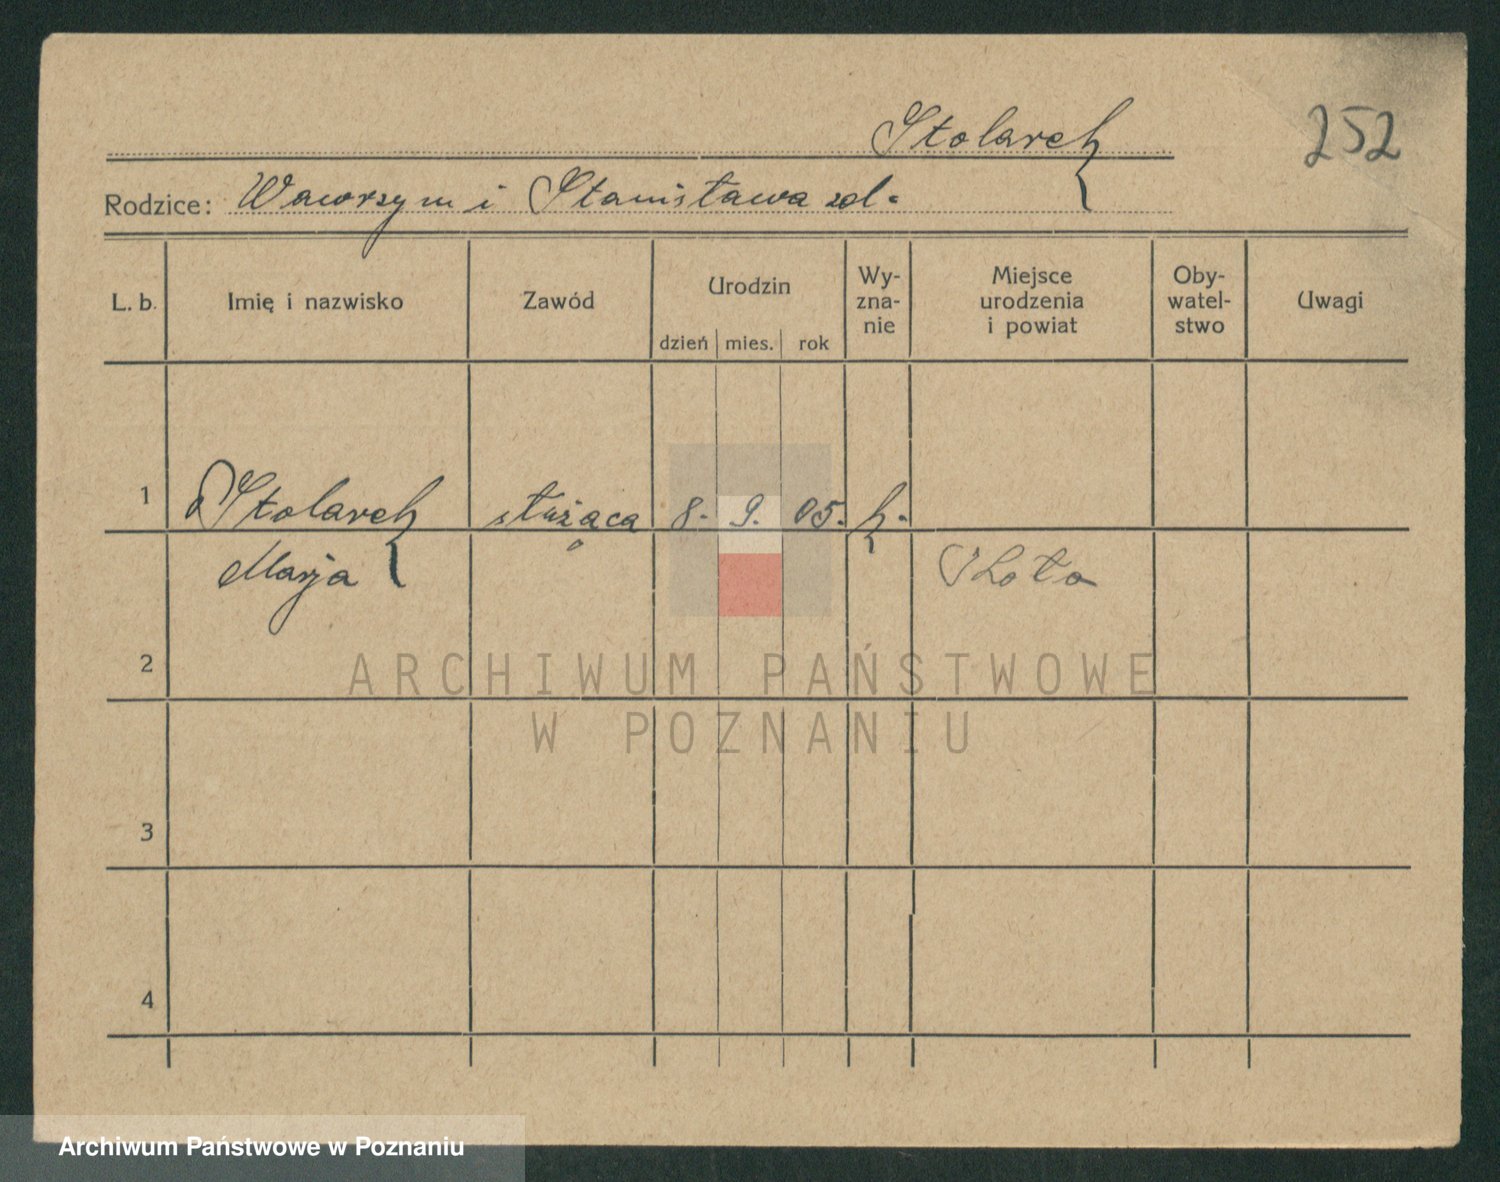 Stolarek
252
Rodzice: Wawrzyn i Stanisława zd.
L. b. Imię i nazwisko Zawód Urodzin Wy-zna-nie Miejsce urodzenia i powiat Oby-watel-stwo Uwagi
dzień mies. rok
1 Stolarek służąca 8. 9. 05. k.
Marja
2
3
4
ARCHIWUM PAŃSTWOWE
W POZNANIU
Archiwum Państwowe w Poznaniu